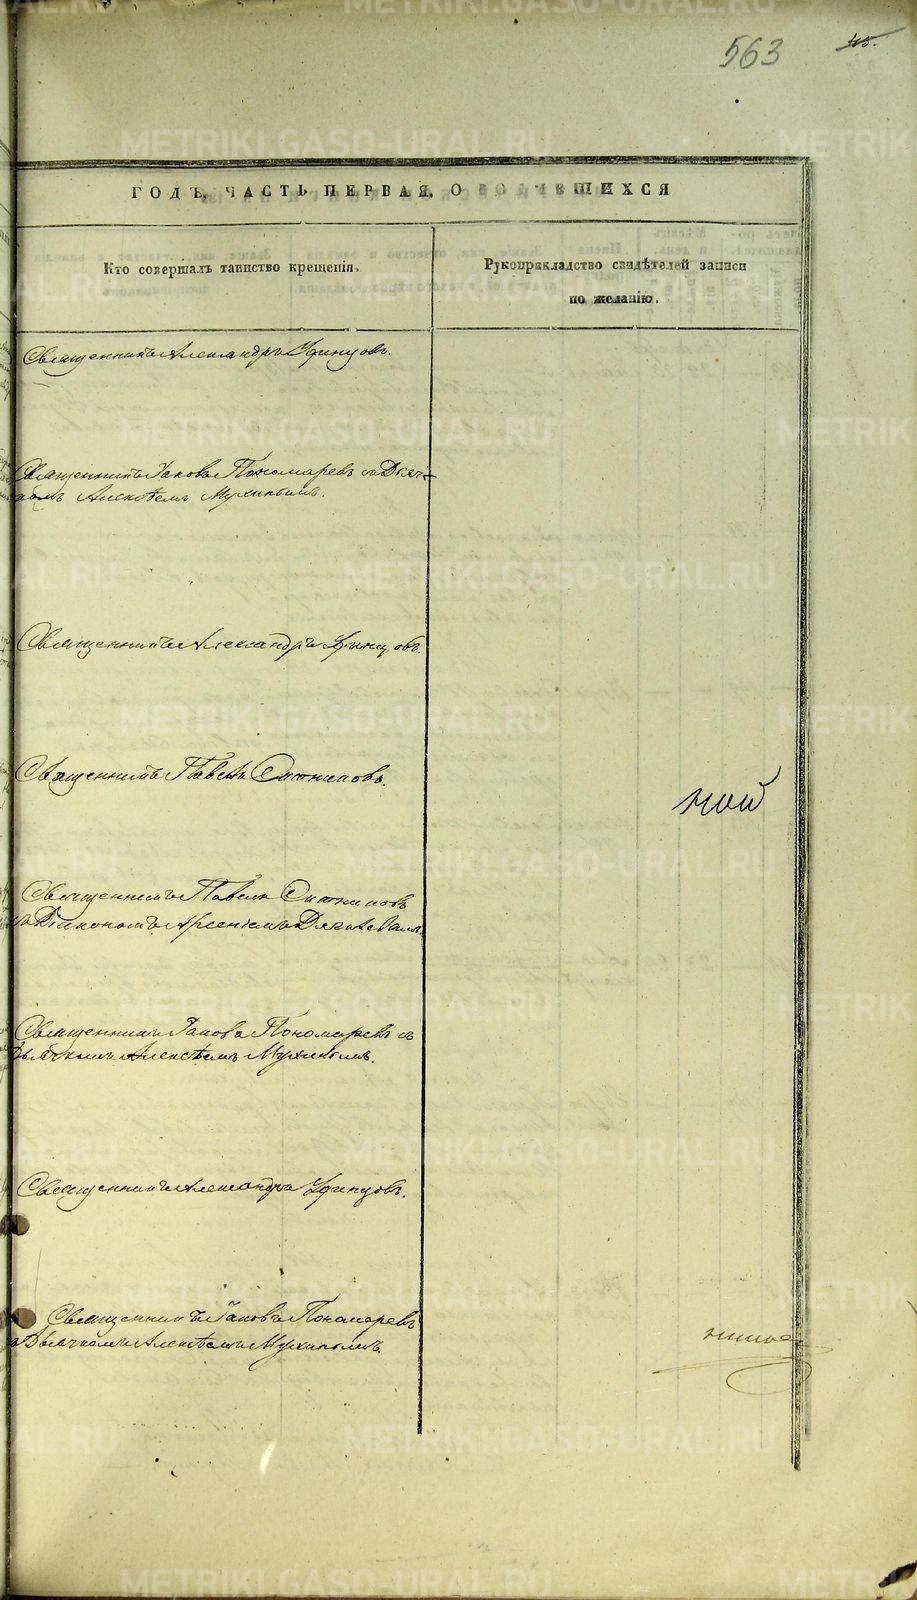 563
ГОДЪ, ЧАСТЬ ПЕРВАЯ, О РОДИВШИХСЯ
Кто совершалъ таинство крещенія.
Рукоприкладство свидѣтелей записи
по желанію.
Священникъ Александръ Уфинцовъ.
Священникъ Іаковъ Пономаревъ съ Дьяч-
комъ Алексѣемъ Мухинымъ.
Священникъ Александръ Уфинцовъ.
Священникъ Павелъ Ситниковъ.
ной
Священникъ Павелъ Ситниковъ
съ Діакономъ Арсеніемъ
Священникъ Іаковъ Пономаревъ съ
Дьячкомъ Алексѣемъ Мухинымъ.
Священникъ Александръ Уфинцовъ.
Священникъ Іаковъ Пономаревъ
съ Дьячкомъ Алексѣемъ Мухинымъ.
METRIKI.GASO-URAL.RU